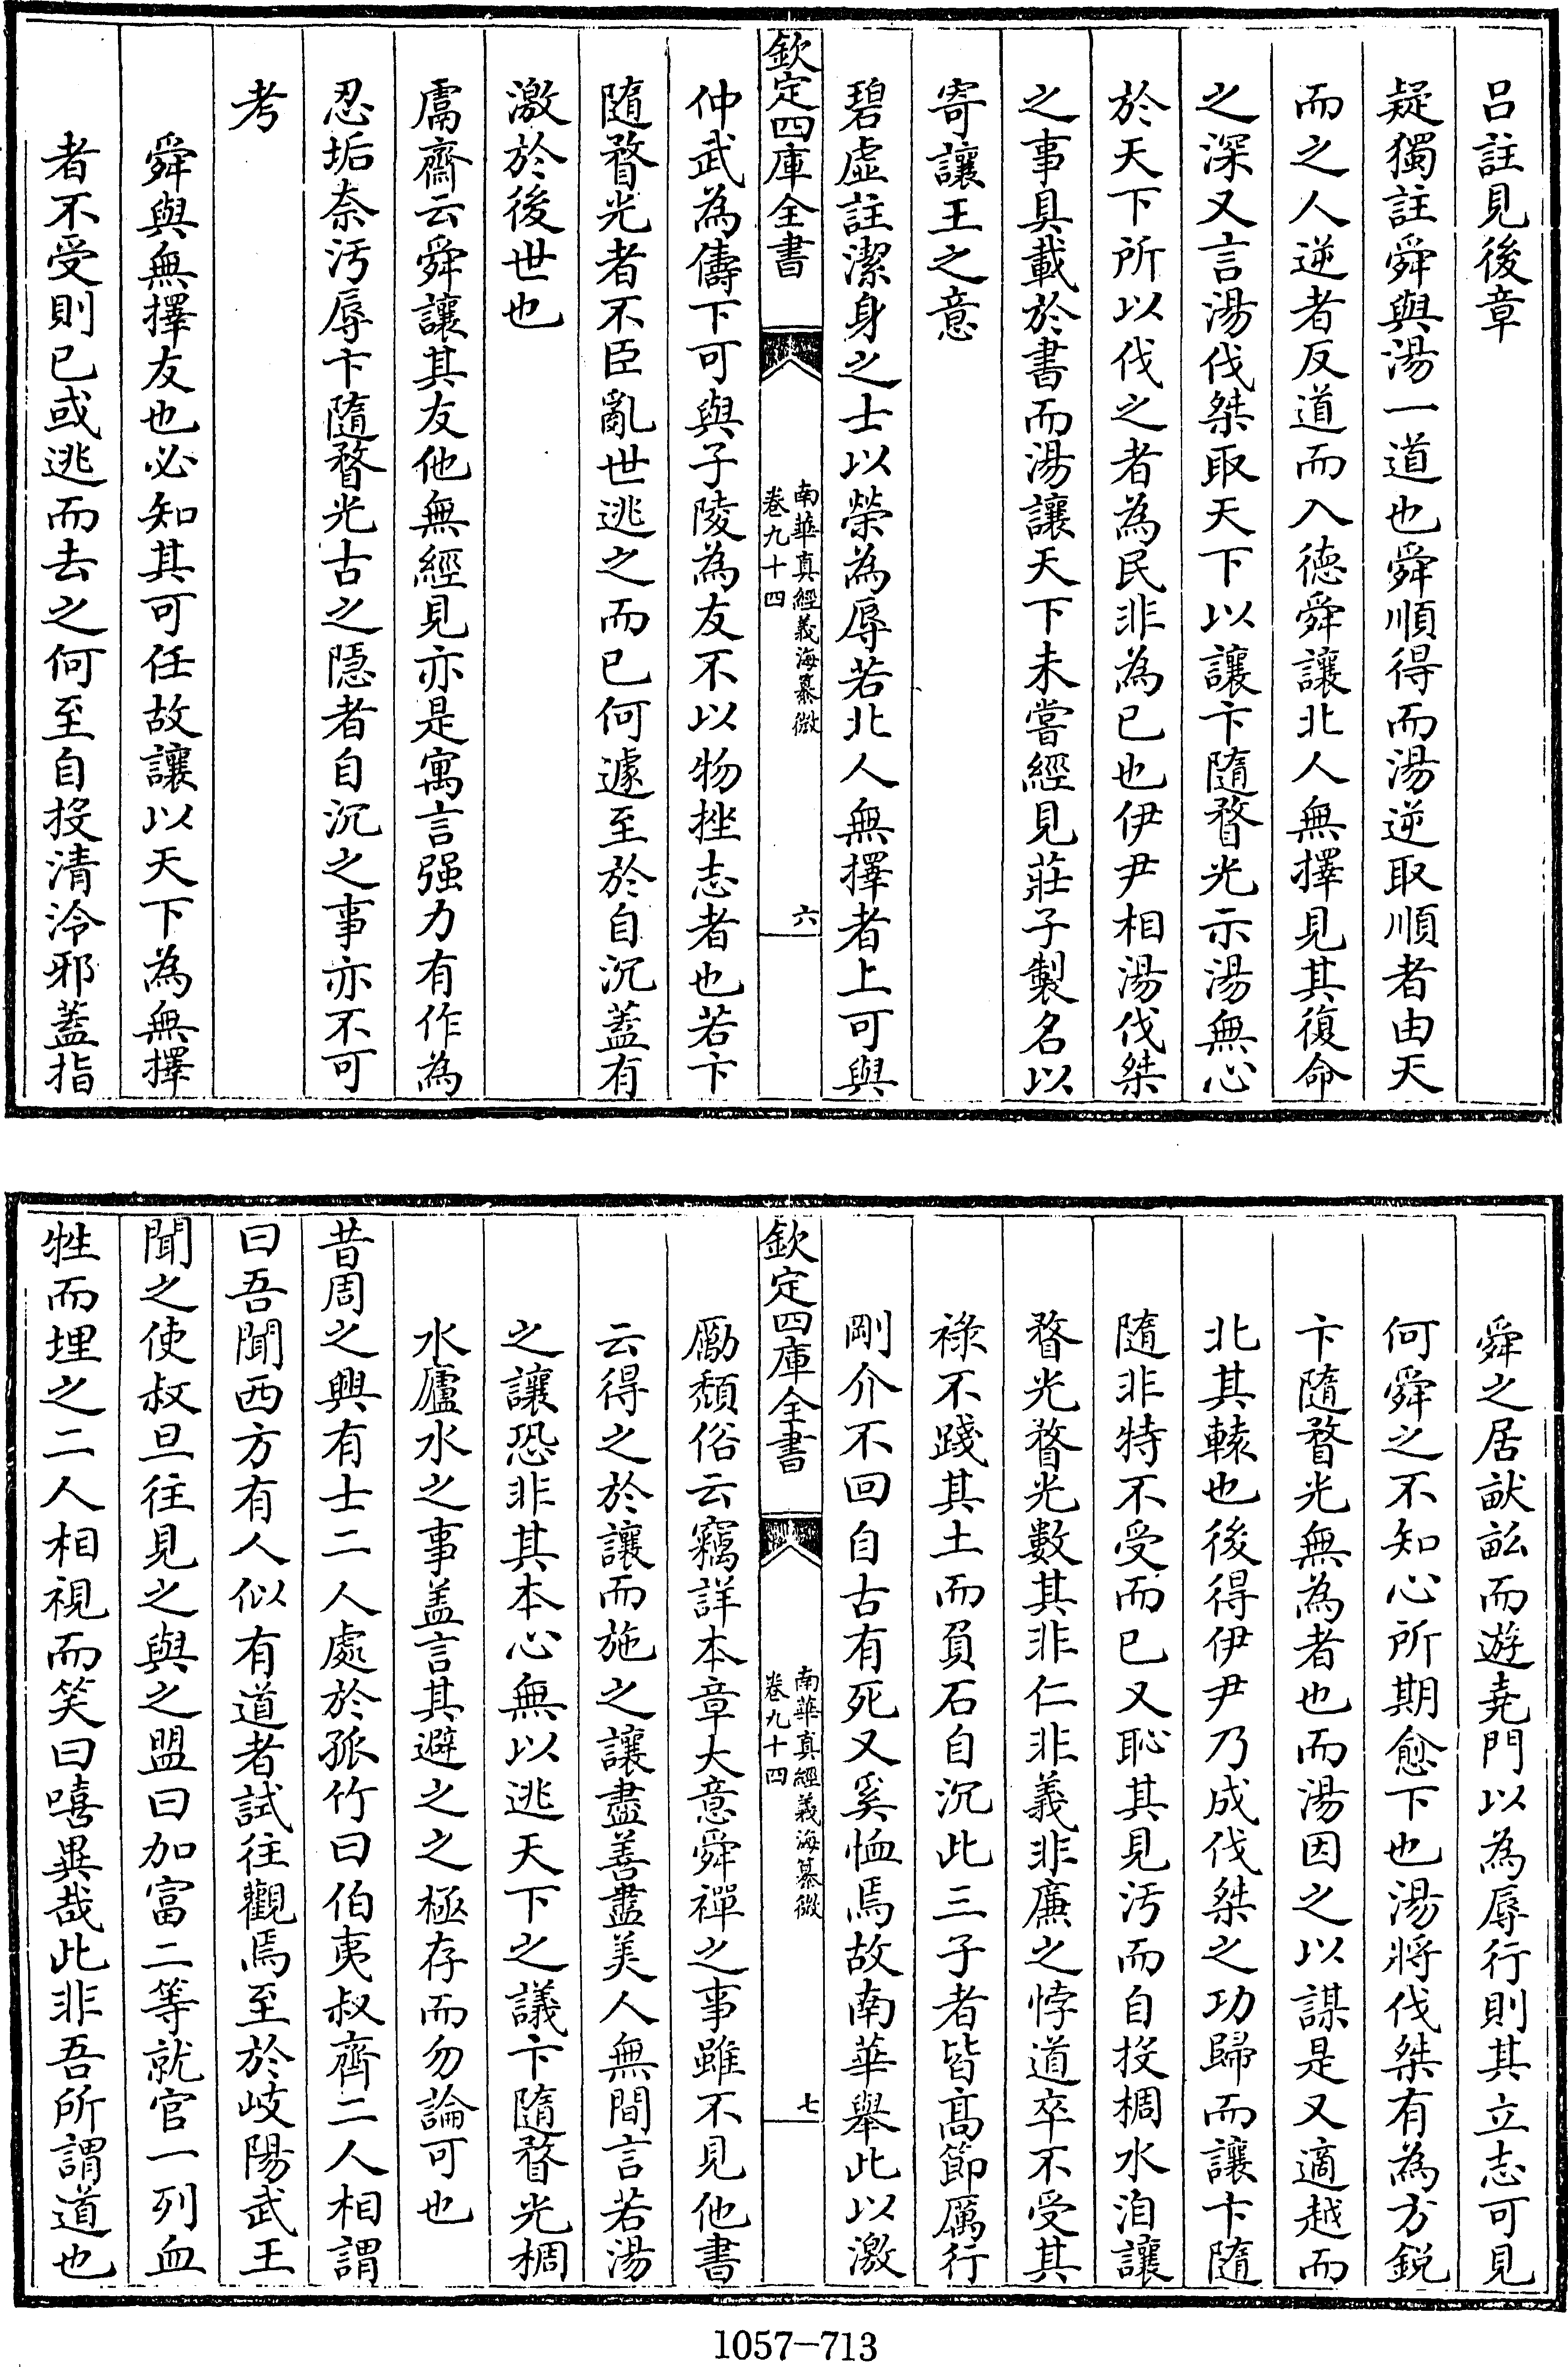 呂註見後章
疑獨註舜與湯一道也舜順得而湯逆取順者由天
而之人逆者反道而入德舜讓北人無擇見其復命
之深又言湯伐桀取天下以讓卞隨瞀光示湯無心
於天下所以伐之者為民非為已也伊尹相湯伐桀
之事具載於書而湯讓天下未嘗經見莊子製名以
寄讓王之意
碧虛註潔身之士以榮為辱若北人無擇者上可與
欽定四庫全書
南華真經義海纂微
卷九十四
六
仲武為儔下可與子陵為友不以物挫志者也若卞
隨瞀光者不臣亂世逃之而已何遽至於自沉蓋有
激於後世也
鬳齋云舜讓其友他無經見亦是寓言强力有作為
忍垢奈汚辱卞隨瞀光古之隱者自沉之事亦不可
考
舜與無擇友也必知其可任故讓以天下為無擇
者不受則已或逃而去之何至自投清泠邪蓋指
舜之居畎畝而遊堯門以為辱行則其立志可見
何舜之不知心所期愈下也湯將伐桀有為方銳
卞隨瞀光無為者也而湯因之以謀是又適越而
北其轅也後得伊尹乃成伐桀之功歸而讓卞隨
隨非特不受而已又恥其見汚而自投椆水洎讓
瞀光瞀光數其非仁非義非廉之悖道卒不受其
祿不踐其土而負石自沉此三子者皆高節厲行
剛介不回自古有死又奚恤焉故南華舉此以激
欽定四庫全書
南華真經義海纂微
卷九十四
七
勵頹俗云竊詳本章大意舜禪之事雖不見他書
云得之於讓而施之讓盡善盡美人無間言若湯
之讓恐非其本心無以逃天下之議卞隨瞀光椆
水廬水之事盖言其避之之極存而勿論可也
昔周之興有士二人處於孤竹曰伯夷叔齊二人相謂
曰吾聞西方有人似有道者試往觀焉至於岐陽武王
聞之使叔旦往見之與之盟曰加富二等就官一列血
牲而埋之二人相視而笑曰嘻異哉此非吾所謂道也
1057-713